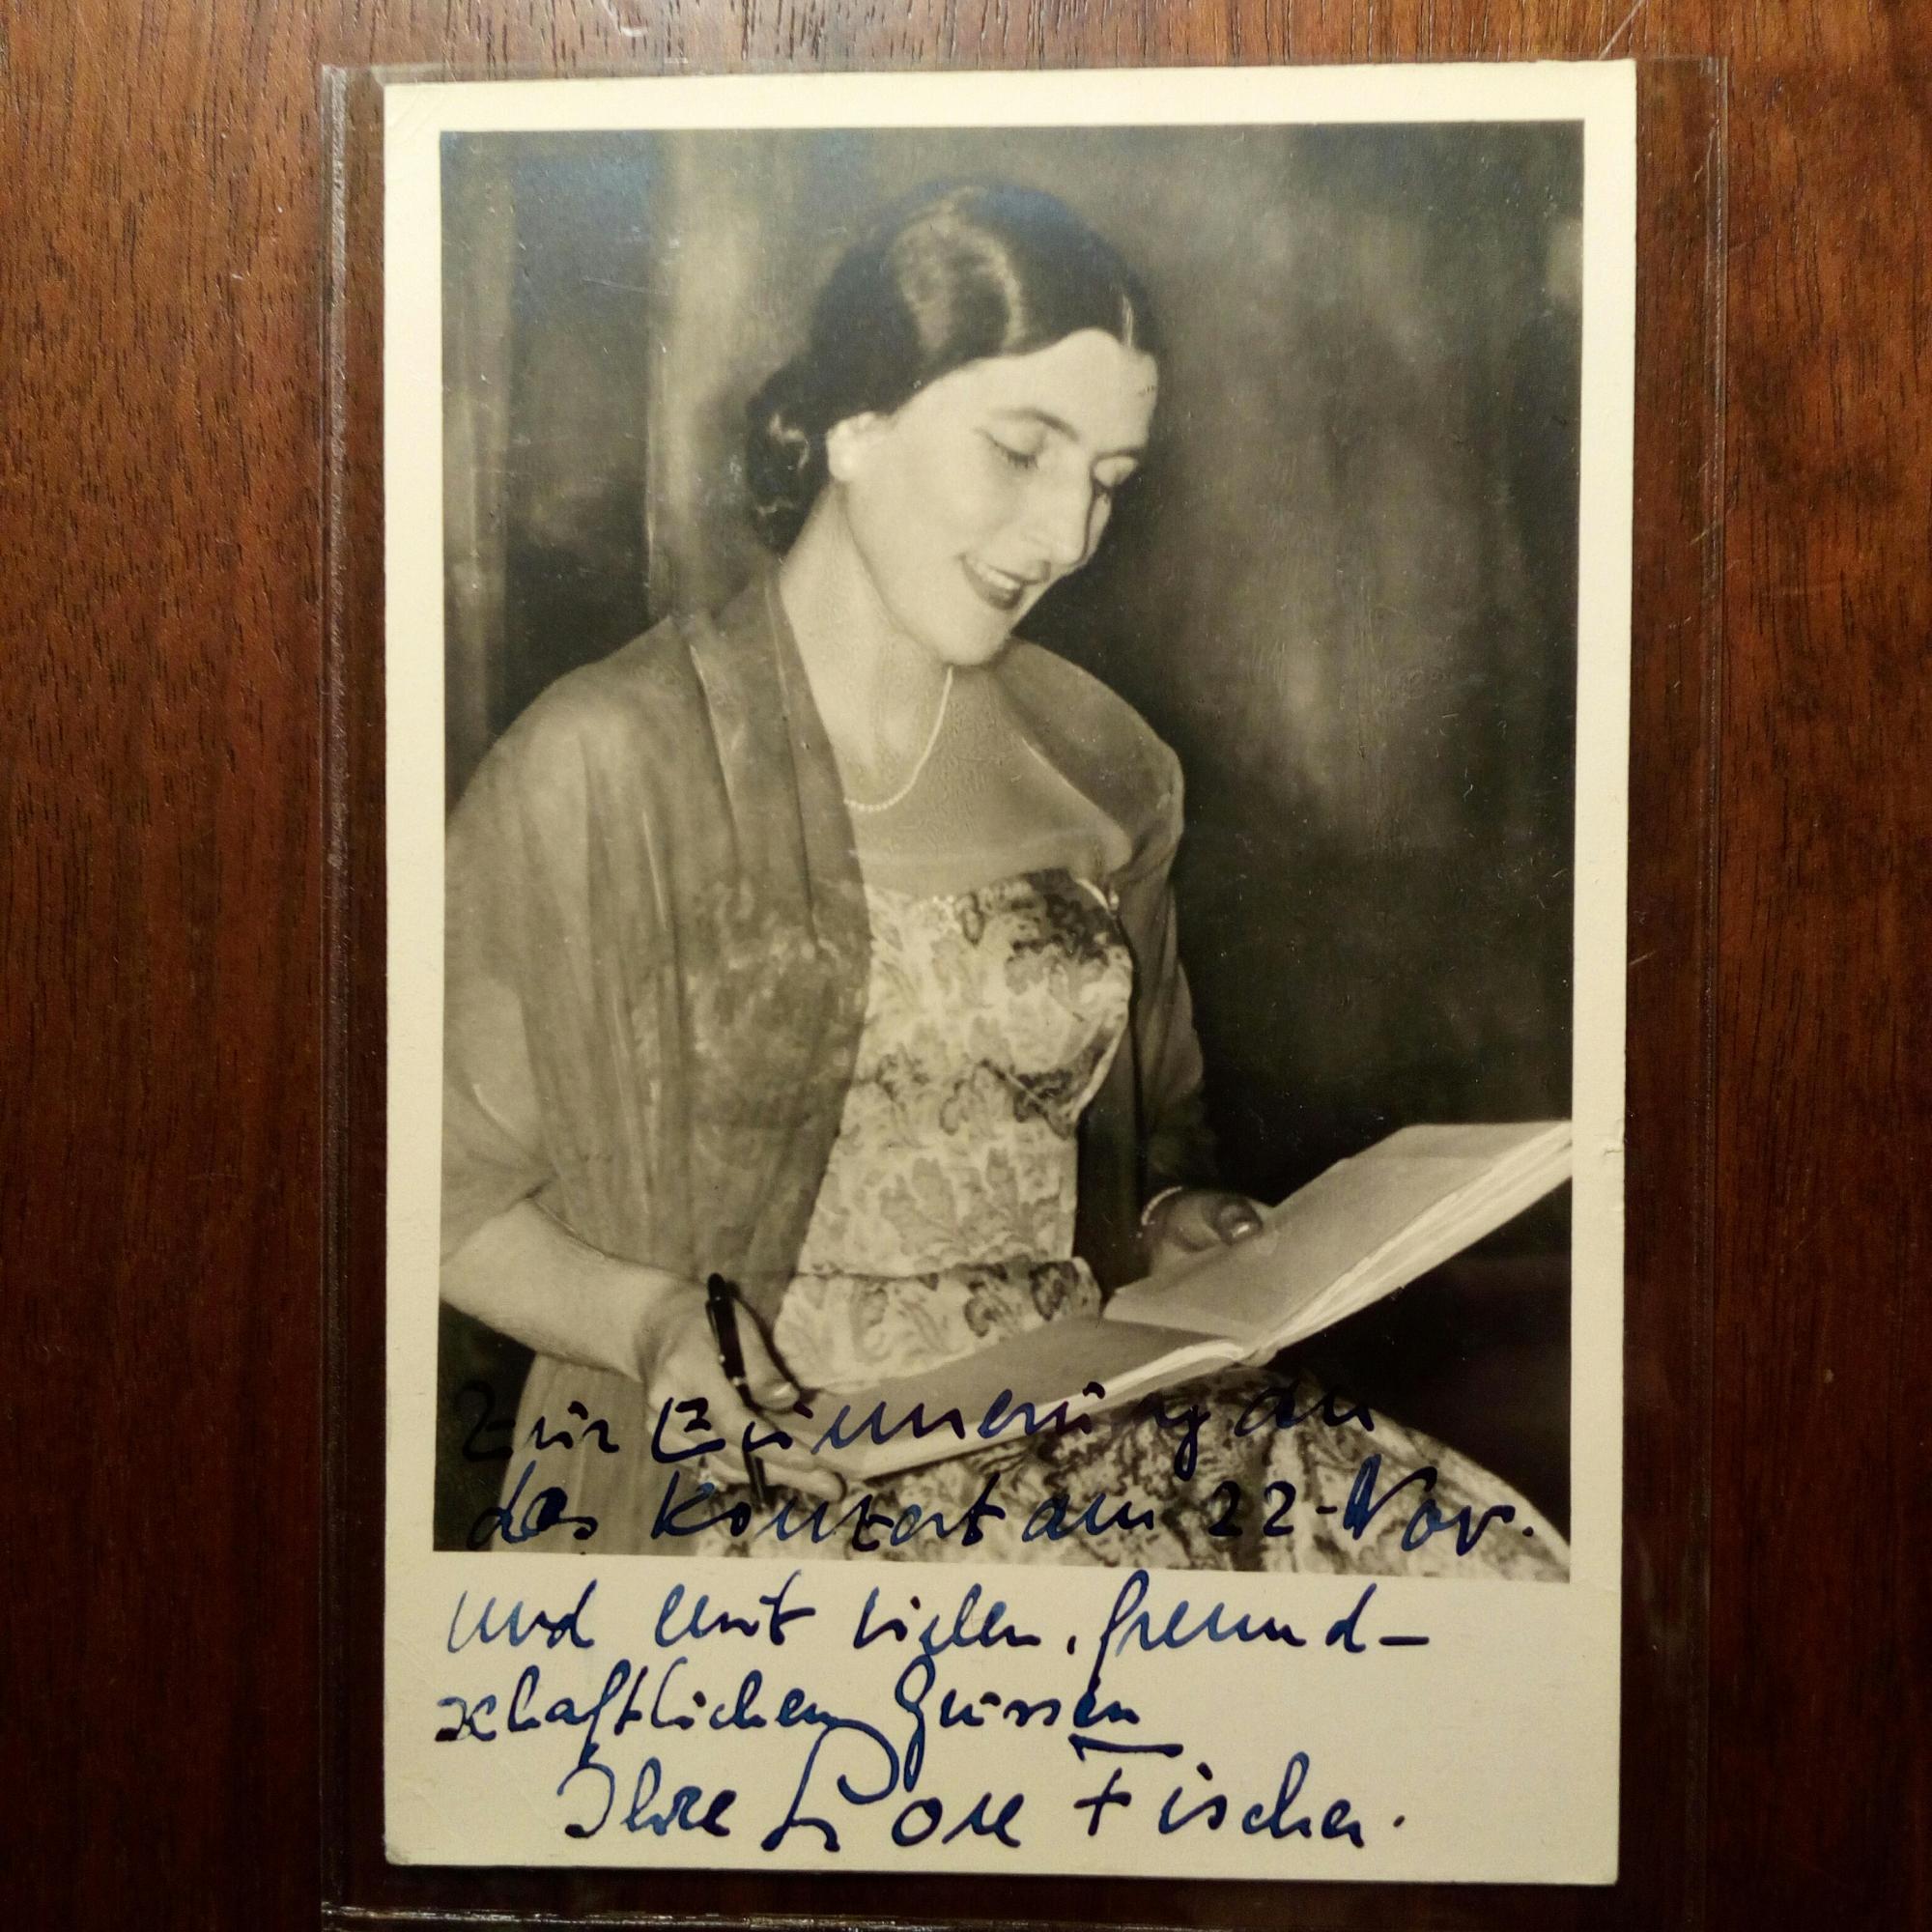 Zur Erinnerung an
das Konzert am 22. Nov.
und mit vielen, freund-
schaftlichen Grüssen
Ihre Lore Fischer.